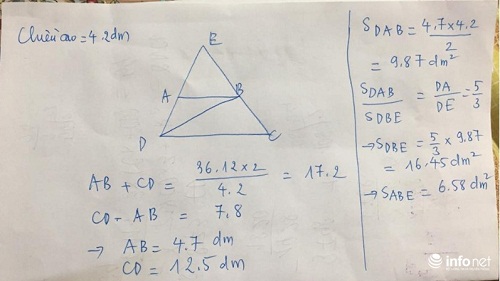 Chiều cao = 4.2dm
E
A B
D C
AB + CD = 36.12 x 2 / 4.2 = 17.2
CD - AB = 7.8
→ AB = 4.7 dm
CD = 12.5 dm
S DAB = 4.7 x 4.2 / 2
= 9.87 dm²
S DAB / S DBE = DA / DE = 5/3
→ S DBE = 5/3 x 9.87
= 16.45 dm²
→ S ABE = 6.58 dm²
infonet